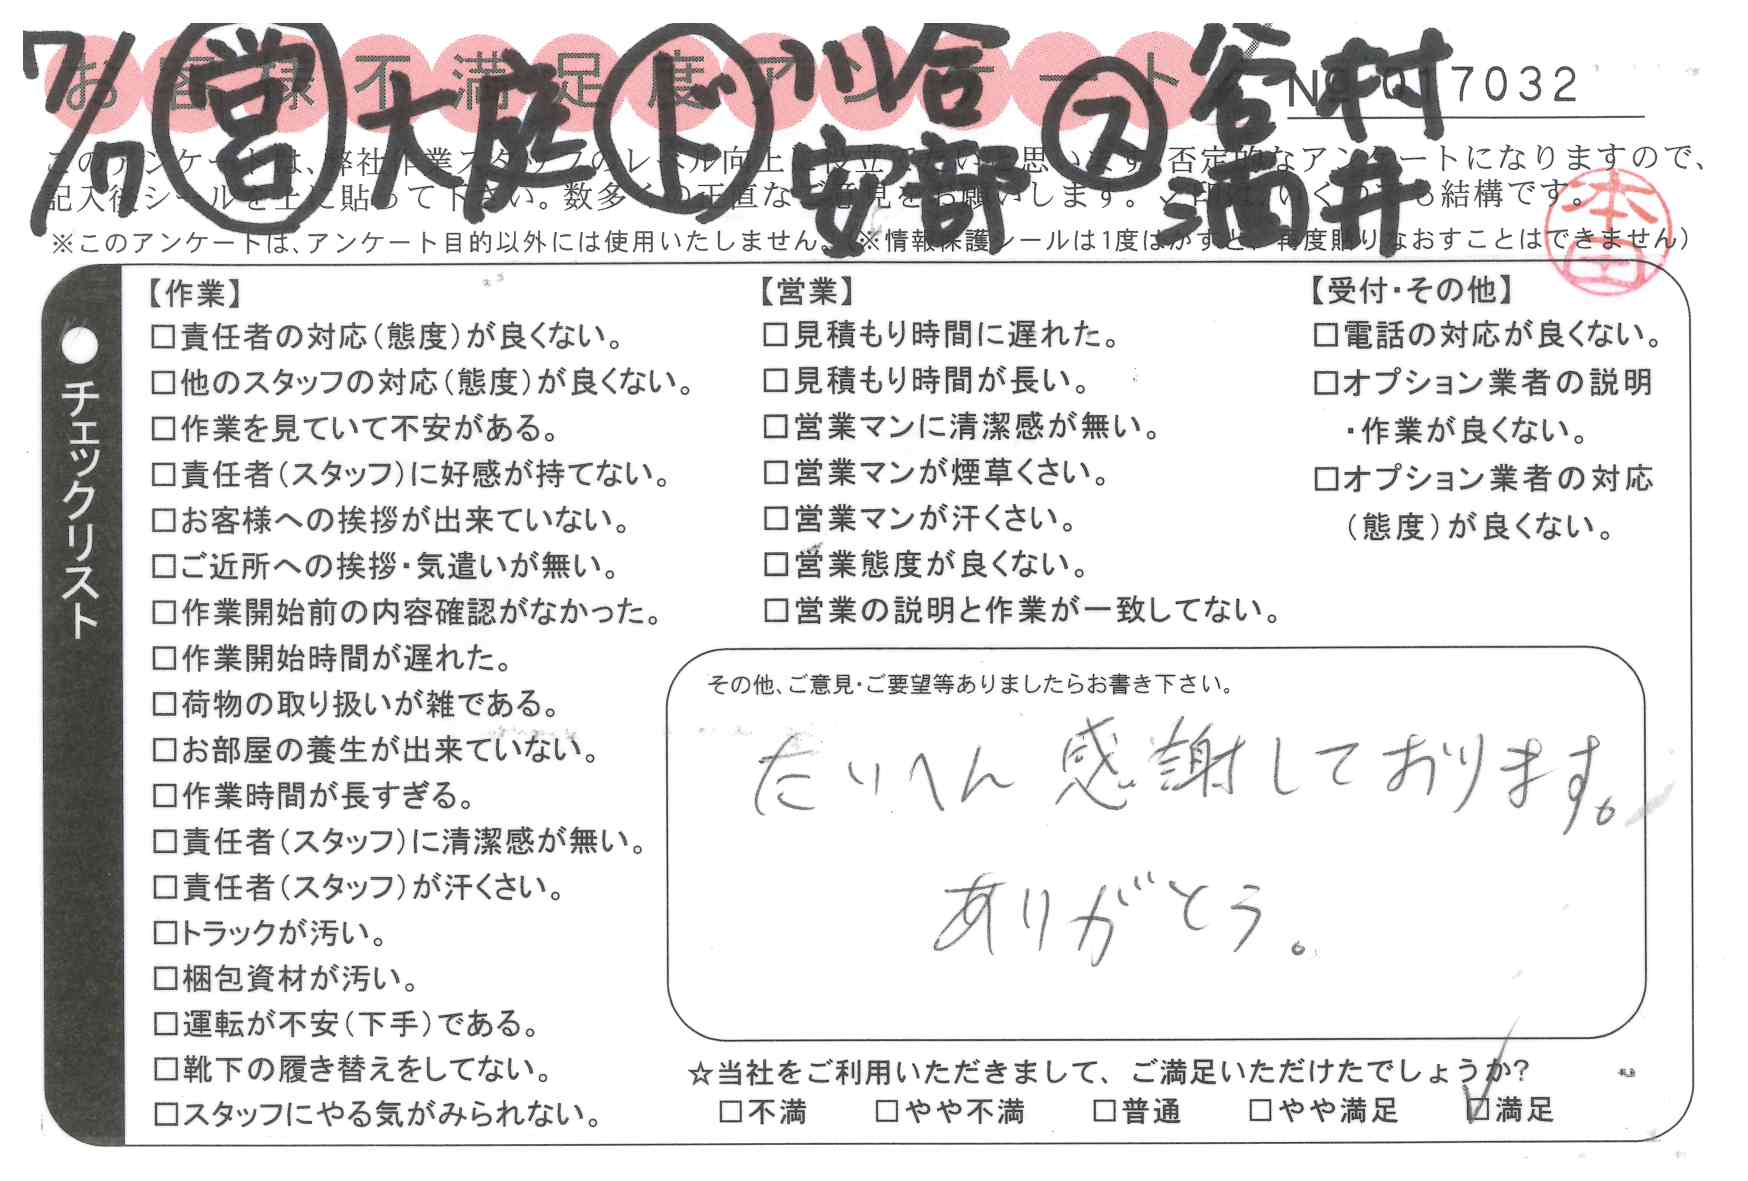 お客様不満足度アンケート
№ 017032
7/7 営 大庭 ド 川合 安部 ス 谷村 酒井
このアンケートは、弊社作業スタッフのレベル向上に役立てたいと思います。否定的なアンケートになりますので、
記入後シールを上に貼って下さい。数多くの正直なご意見をお願いします。✓印は、いくつでも結構です。
※このアンケートは、アンケート目的以外には使用いたしません。(※情報保護シールは1度はがすと、再度貼りなおすことはできません)
本田
●チェックリスト
【作業】
□責任者の対応(態度)が良くない。
□他のスタッフの対応(態度)が良くない。
□作業を見ていて不安がある。
□責任者(スタッフ)に好感が持てない。
□お客様への挨拶が出来ていない。
□ご近所への挨拶・気遣いが無い。
□作業開始前の内容確認がなかった。
□作業開始時間が遅れた。
□荷物の取り扱いが雑である。
□お部屋の養生が出来ていない。
□作業時間が長すぎる。
□責任者(スタッフ)に清潔感が無い。
□責任者(スタッフ)が汗くさい。
□トラックが汚い。
□梱包資材が汚い。
□運転が不安(下手)である。
□靴下の履き替えをしてない。
□スタッフにやる気がみられない。
【営業】
□見積もり時間に遅れた。
□見積もり時間が長い。
□営業マンに清潔感が無い。
□営業マンが煙草くさい。
□営業マンが汗くさい。
□営業態度が良くない。
□営業の説明と作業が一致してない。
【受付・その他】
□電話の対応が良くない。
□オプション業者の説明
・作業が良くない。
□オプション業者の対応
(態度)が良くない。
その他、ご意見・ご要望等ありましたらお書き下さい。
たいへん感謝しております。
ありがとう。
☆当社をご利用いただきまして、ご満足いただけたでしょうか?
□不満 □やや不満 □普通 □やや満足 ☑満足